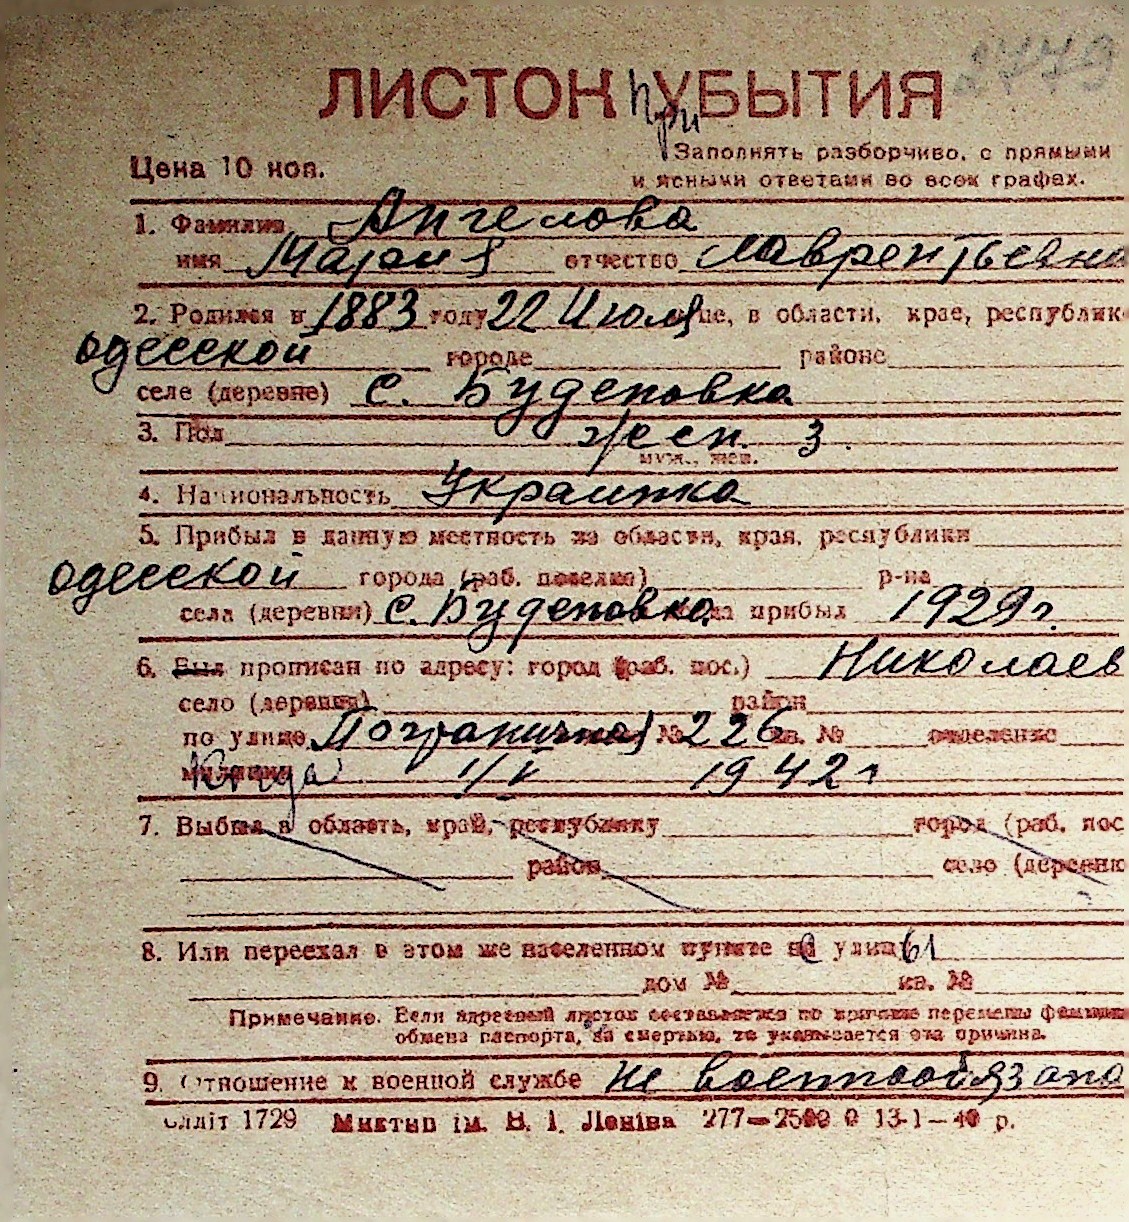 2779
ЛИСТОК УБЫТИЯ
При
Цена 10 коп.
Заполнять разборчиво, с прямыми
и ясными ответами во всех графах.
1. Фамилия Ангелова
имя Мария отчество Лаврентьевна
2. Родился в 1883 году 22 Июля це, в области, крае, республик
одесской городе районе
селе (деревне) с. Буденовка
3. Пол жен. 3
муж., жен.
4. Национальность Украинка
5. Прибыл в данную местность из области, края, республики
одесской города (раб. поселка) р-на
села (деревни) с. Буденовка когда прибыл 1929 г.
6. Был прописан по адресу: город (раб. пос.) Николаев
село (деревня) район
по улице Пограничная № 226 кв. № отделение
милиции Когда 1/V 1942 г
7. Выбыл в область, край, республику город (раб. пос
район село (деревню
8. Или переехал в этом же населенном пункте на улицу
с 61
дом № кв. №
Примечание. Если адресный листок составляется по причине перемены фамилии
обмена паспорта, за смертью, то указывается эта причина.
9. Отношение к военной службе не военнообязана
Олліт 1729 Миктип ім. В. І. Леніна 277—2500 0 13-1—40 р.